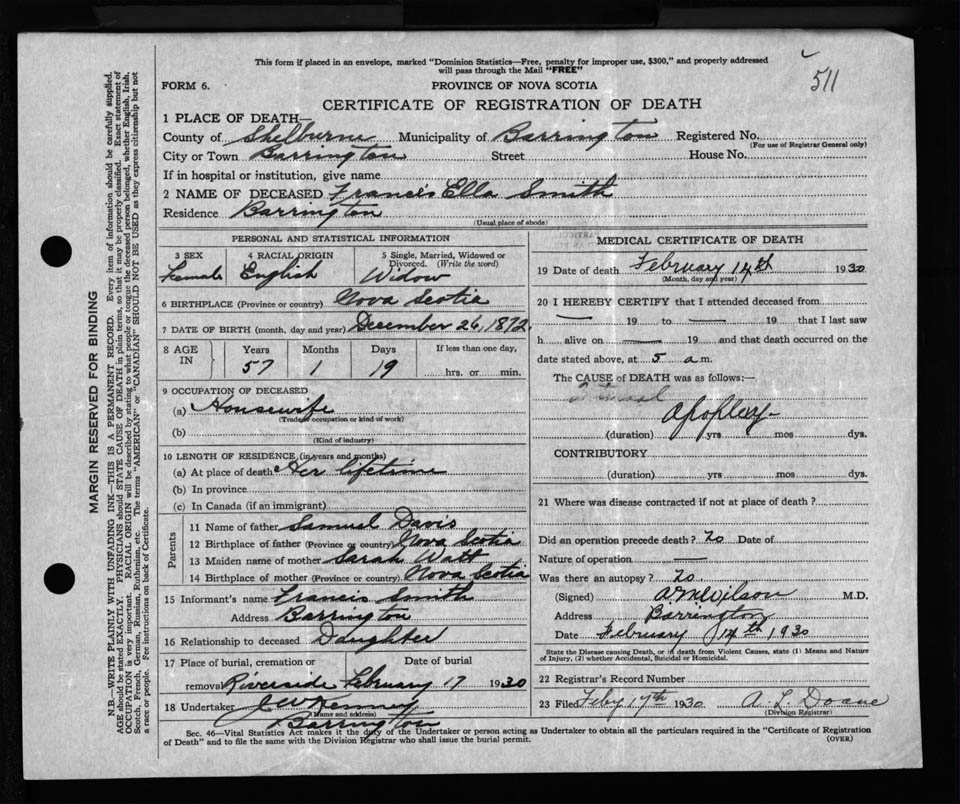 511
This form if placed in an envelope, marked "Dominion Statistics—Free, penalty for improper use, $300," and properly addressed
will pass through the Mail "FREE"
FORM 6.
PROVINCE OF NOVA SCOTIA
CERTIFICATE OF REGISTRATION OF DEATH
1 PLACE OF DEATH—
County of Shelburne Municipality of Barrington Registered No.
(For use of Registrar General only)
City or Town Barrington Street House No.
If in hospital or institution, give name
2 NAME OF DECEASED Francis Ella Smith
Residence Barrington
(Usual place of abode)
PERSONAL AND STATISTICAL INFORMATION
3 SEX 4 RACIAL ORIGIN 5 Single, Married, Widowed or
Divorced. (Write the word)
Female English Widow
6 BIRTHPLACE (Province or country) Nova Scotia
7 DATE OF BIRTH (month, day and year) December 26, 1872.
8 AGE IN Years Months Days If less than one day,
57 1 19 hrs. or min.
9 OCCUPATION OF DECEASED
(a) Housewife
(Trade, occupation or kind of work)
(b)
(Kind of industry)
10 LENGTH OF RESIDENCE (in years and months)
(a) At place of death Her lifetime
(b) In province
(c) In Canada (if an immigrant)
Parents
11 Name of father Samuel Davis
12 Birthplace of father (Province or country) Nova Scotia
13 Maiden name of mother Sarah Watt
14 Birthplace of mother (Province or country) Nova Scotia
15 Informant's name Francis Smith
Address Barrington
16 Relationship to deceased Daughter
17 Place of burial, cremation or Date of burial
removal Riverside February 17 1930
18 Undertaker Kenney
(Name and address)
Barrington
MEDICAL CERTIFICATE OF DEATH
19 Date of death February 14th 1930
(Month, day and year)
20 I HEREBY CERTIFY that I attended deceased from
— 19 to — 19 that I last saw
h alive on — 19 and that death occurred on the
date stated above, at 5 a.m.
The CAUSE of DEATH was as follows:—
Apoplexy
(duration) yrs mos dys.
CONTRIBUTORY
(duration) yrs mos dys.
21 Where was disease contracted if not at place of death?
Did an operation precede death? no Date of
Nature of operation —
Was there an autopsy? no
(Signed) Wilson M.D.
Address Barrington
Date February 14th 1930
State the Disease causing Death, or in death from Violent Causes, state (1) Means and Nature
of Injury, (2) whether Accidental, Suicidal or Homicidal.
22 Registrar's Record Number
23 Filed Feby 17th 1930 A L Doane
(Division Registrar)
Sec. 46—Vital Statistics Act makes it the duty of the Undertaker or person acting as Undertaker to obtain all the particulars required in the "Certificate of Registration
of Death" and to file the same with the Division Registrar who shall issue the burial permit.
(OVER)
MARGIN RESERVED FOR BINDING
N.B.—WRITE PLAINLY WITH UNFADING INK—THIS IS A PERMANENT RECORD. Every item of information should be carefully supplied.
AGE should be stated EXACTLY. PHYSICIANS should STATE CAUSE OF DEATH in plain terms, so that it may be properly classified. Exact statement of
OCCUPATION is very important. RACIAL ORIGIN will be described by stating to what people or tongue the deceased person belonged, whether English, Irish,
Scotch, French, German, Russian, Ruthenian, etc. The terms "AMERICAN" or "CANADIAN" SHOULD NOT BE USED as they express citizenship but not
a race or people. See instructions on back of Certificate.